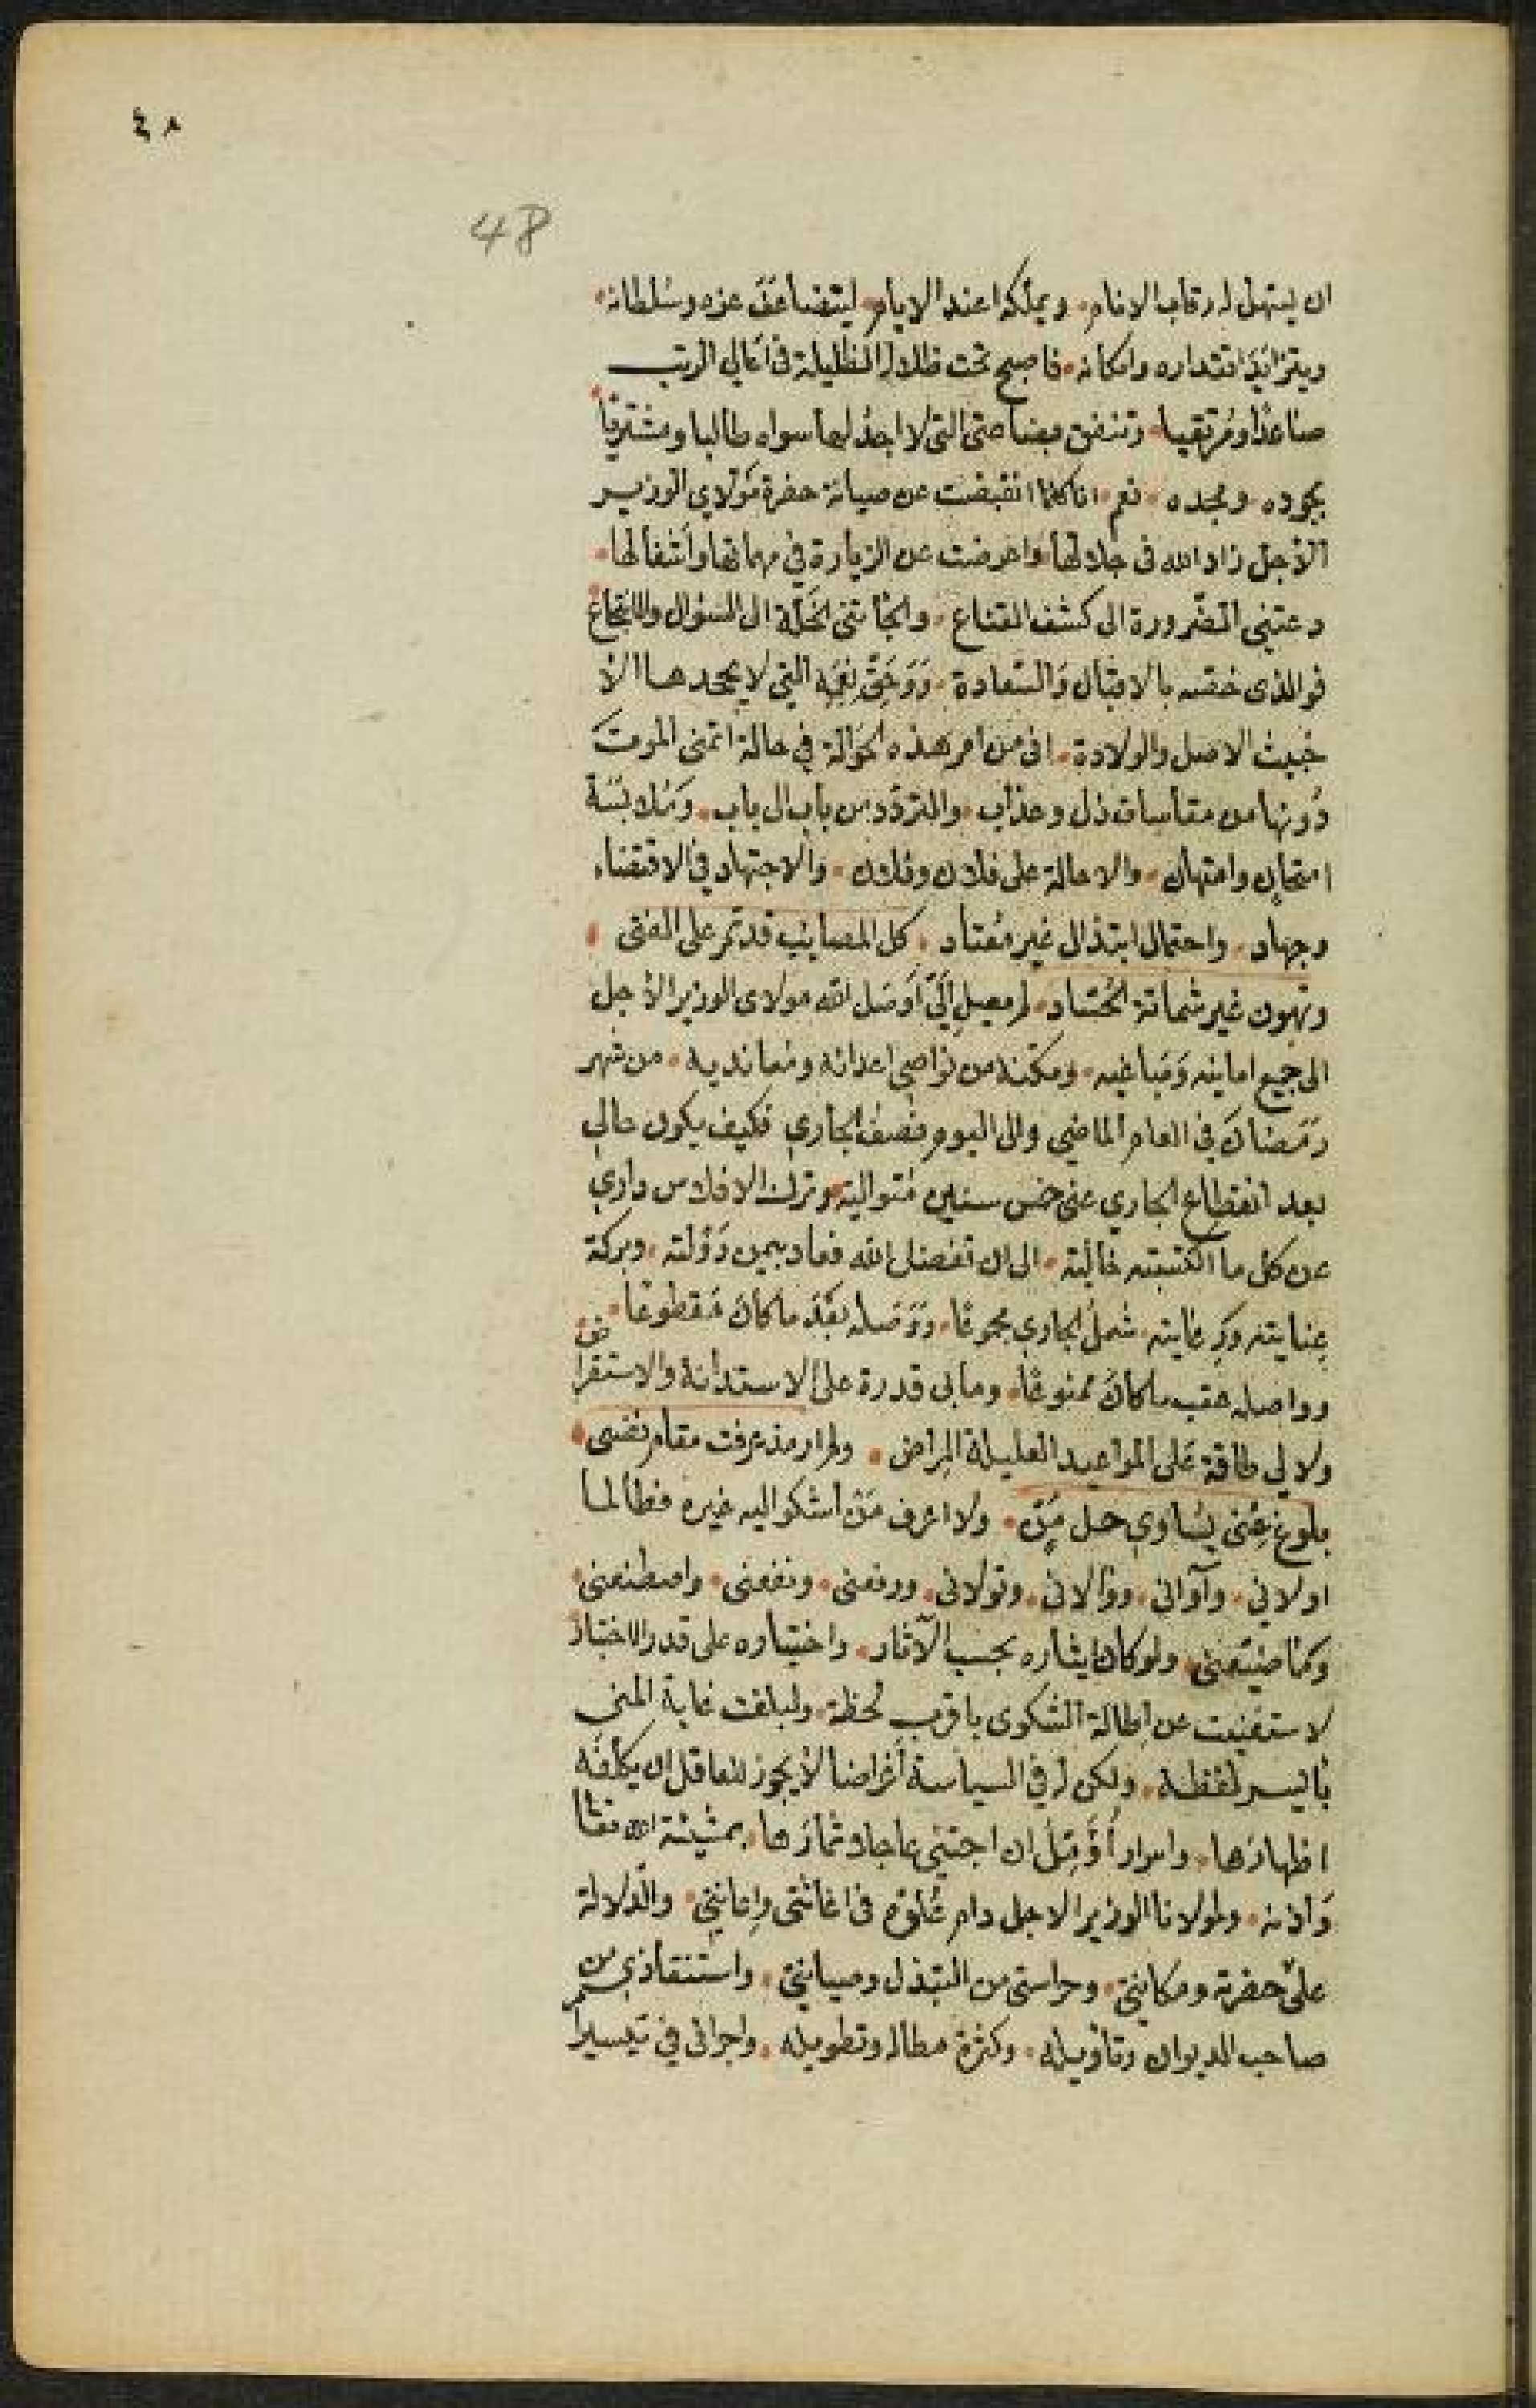 ٤٨
48
ان يستهل له رقاب الانام • ويملكه اعنه الايام • ليتضاعف عزه وسلطانه •
ويتزايد اقتداره وامكانه • فاصبح تحت ظلاله الظليلة في اعالي الرتب
صاعدا ومرتقيا • وتنفق بضاعتي التي لا اجد لها سواه طالبا ومشتريا •
بجوده ومجده • نعم • انا كلما انقبضت عن صيانة حضرة مولاي الوزير
الاجل زاد الله في جلالها • واعرضت عن الزيارة في مهماتها واشغالها •
دعتني الضرورة الى كشف القناع • والجأتني الخلة الى السؤال والانتجاع •
فوالذي خصه بالاقبال والسعادة • ووحق نعمه التي لا يجحدها الا
خبيث الاصل والولادة • اني من امر هذه الحوالة في حالة اتمنى الموت
دونها من مقاسات ذل وعذاب • والتردد من باب الى باب •
امتحان وامتهان • والاحالة على فلان وفلان • والاجتهاد في الاقتضاء
وجهاد • واحتمال ابتذال غير معتاد • كل المصايب قد تمر على الفتى •
وتهون غير شماتة الحساد • لم يصل الي اوصل الله مولاي الوزير الاجل
الى جميع امانيه ومباغيه • ومكنه من نواصي اعدائه ومعانديه • من شهر
رمضان في العام الماضي والى اليوم نصف الجاري فكيف يكون حالي
بعد انقطاع الجاري عني خمس سنين متوالية • وترك الافلاس داري
عن كل ما اكتسبته خالية • الى ان تفضل الله فعاد بيمن دولته • وبركة
عنايته ورعايته • شمل الجاري مجموعا • ووصله بعد ما كان مقطوعا •
وواصله عقيب ما كان ممنوعا • وما بي قدرة على الاستدانة والاستقراض
ولا لي طاقة على المواعيد العليلة المراض • ولم ار مذ عرفت مقام نفسي •
بلوغ غنى يساوي حمل من • ولا اعرف من اشكو اليه غيره فطالما
اولاني • وآواني • ووالاني • وتولاني • ورفعني • ونفعني • واصطنعني •
وكما ضيعني • ولو كان ايثاره بحسب الآثار • واختياره على قدر الاختبار
لاستغنيت عن اطالة الشكوى باقرب لحظة • ولبلغت غاية المنى
بايسر لفظة • ولكن له في السياسة اغراضا لا يجوز للعاقل ان يكلفه
اظهارها • واسرار اؤمل ان اجتني عاجلا ثمارها • بمشيئة الله تعالى
واذنه • ولمولانا الوزير الاجل دام علوه في اغاثتي واعانتي • والدلالة
على حضرته ومكانتي • وحراستي من التبذل وصيانتي • واستنقاذي من
صاحب الديوان وتاويله • وكثرة مطاله وتطويله • واجرائي في تيسير